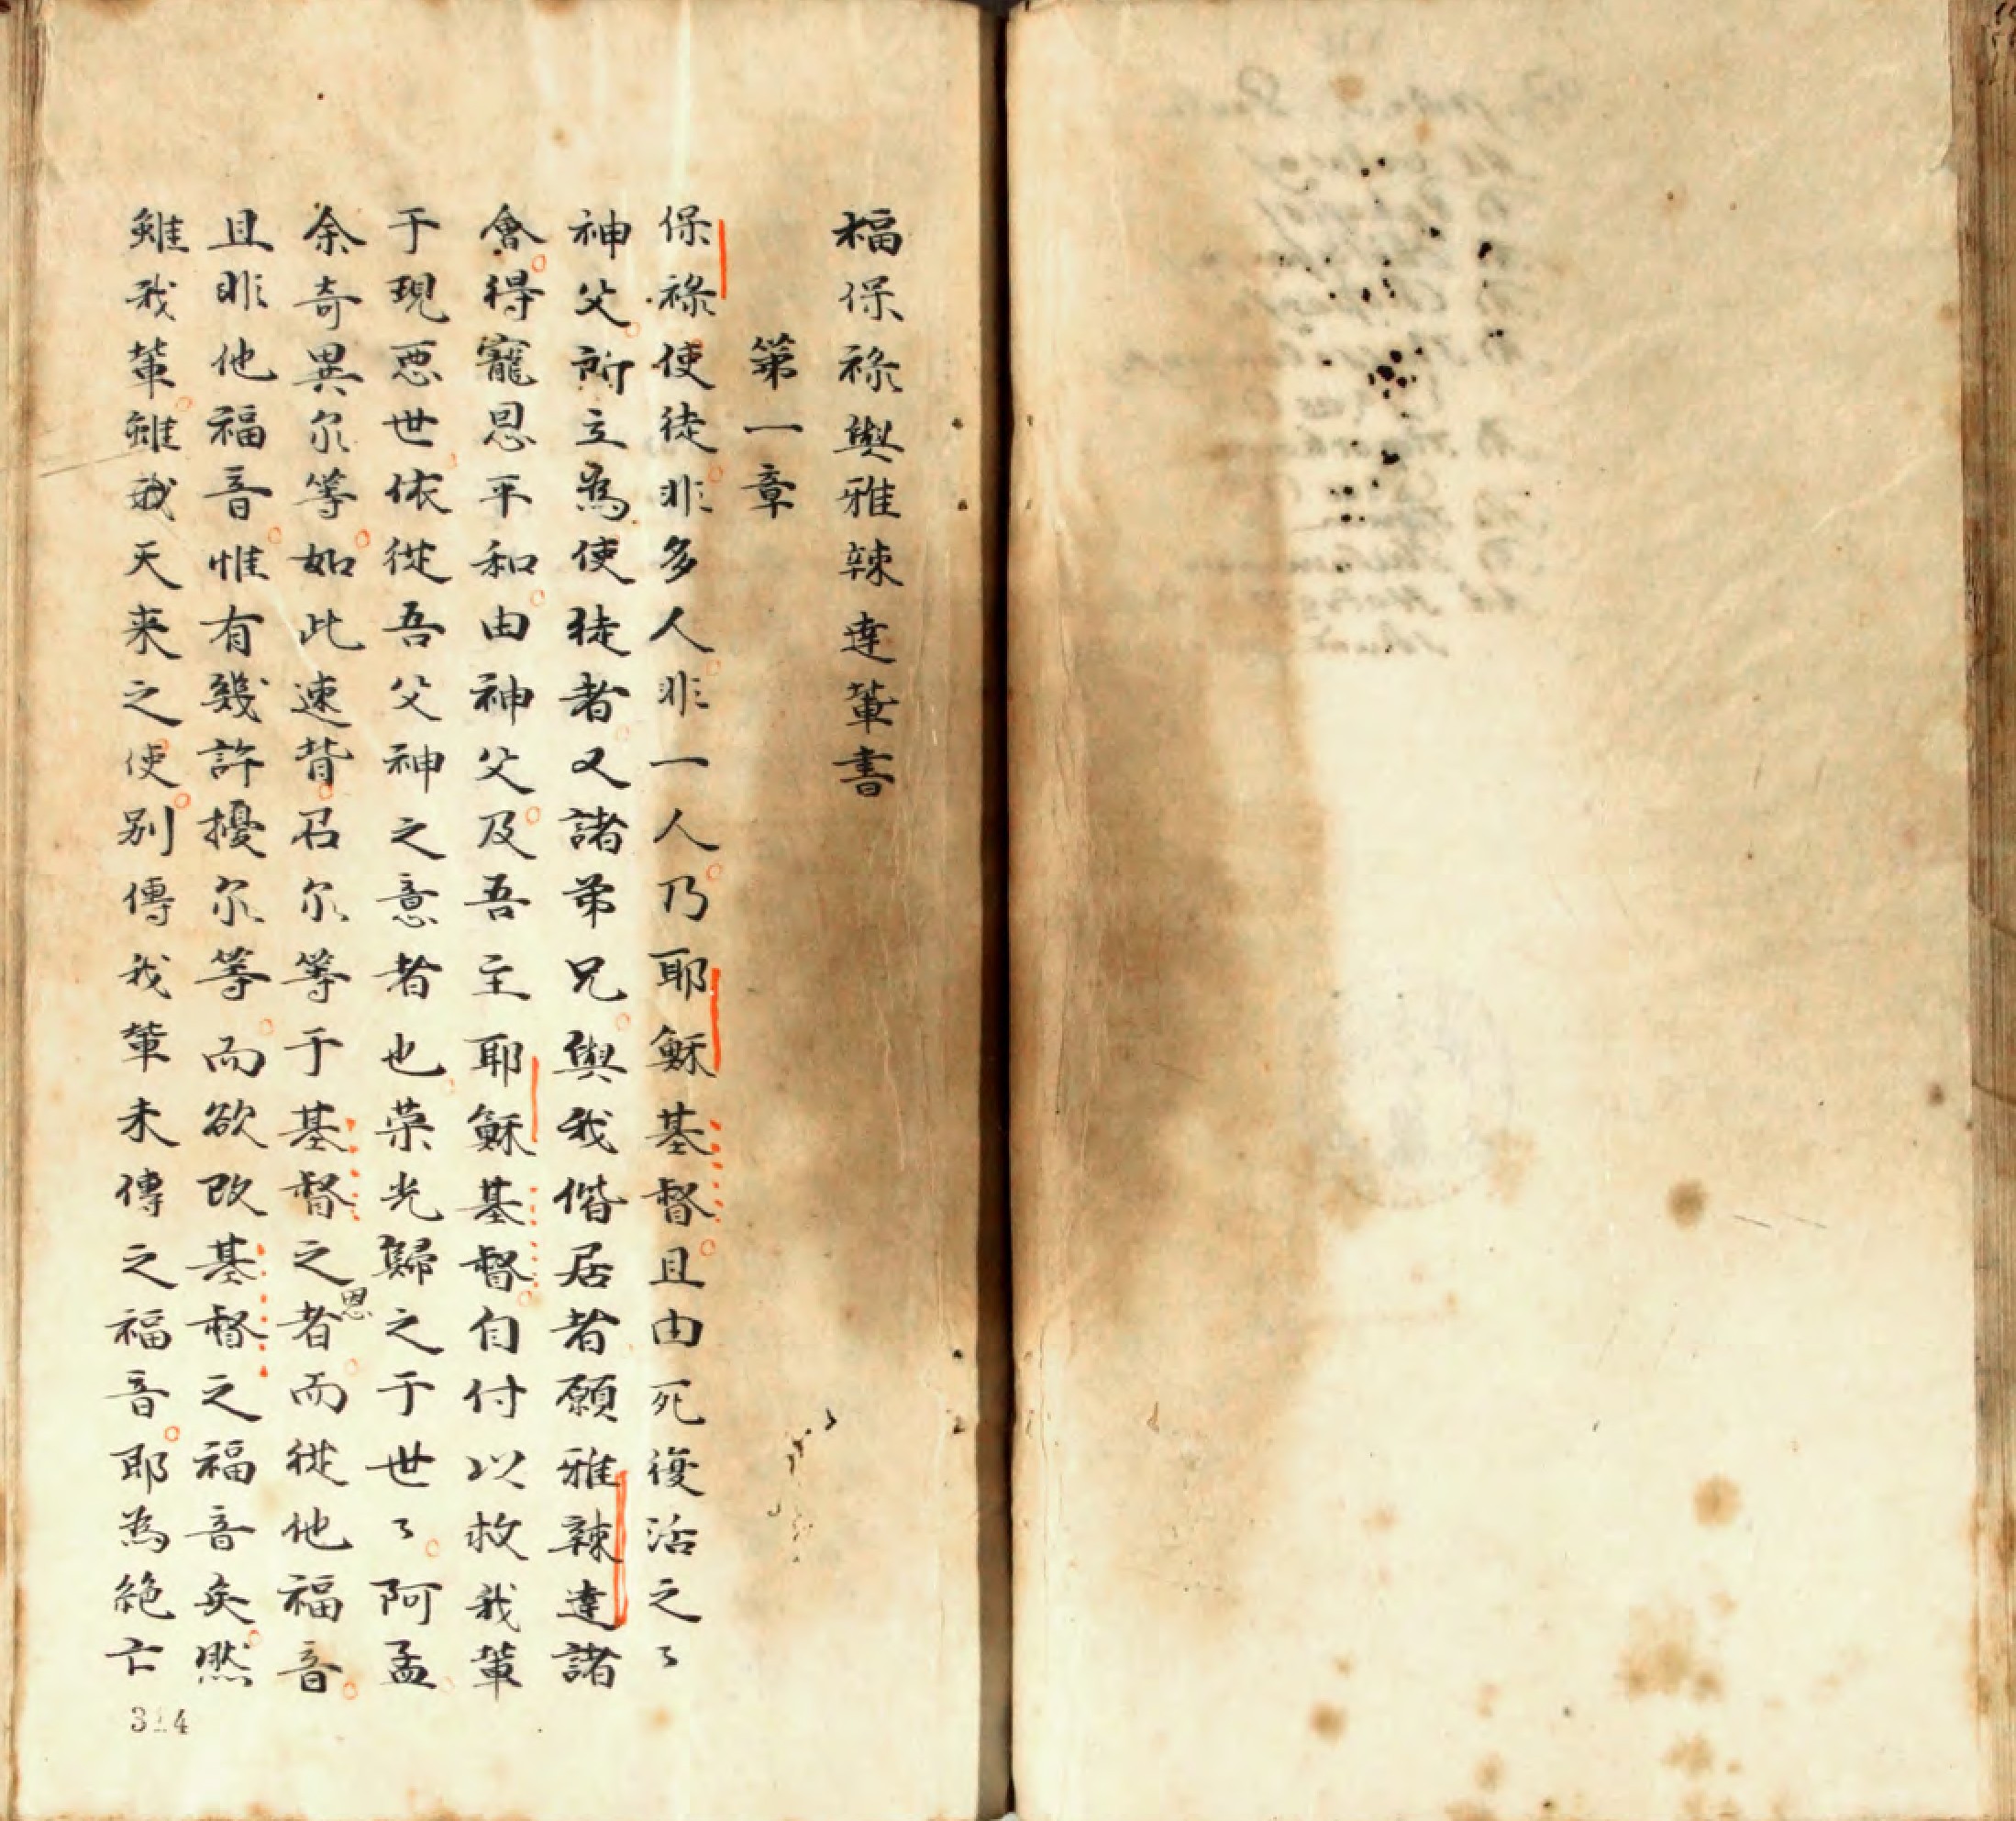 福保祿與雅辣達軰書
第一章
保祿使徒非多人非一人乃耶穌基督且由死復活之〻
神父所立為使徒者又諸弟兄與我偕居者願雅辣達諸
會得寵恩平和由神父及吾主耶穌基督自付以救我軰
于現惡世依從吾父神之意者也荣光歸之于世〻阿孟
余奇異尔等如此速背召尔等于基督之恩者而從他福音
且非他福音惟有幾許擾尔等而欲改基督之福音矣然
雖我軰雖或天来之使別傳我軰未傳之福音耶為絶亡
314